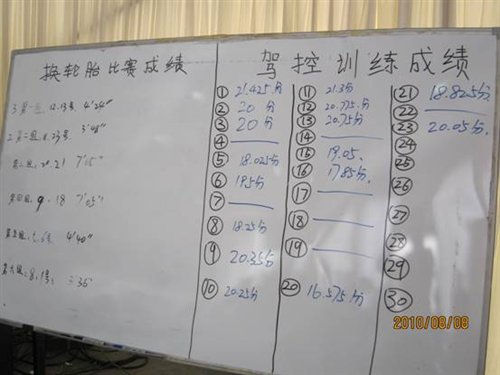 换轮胎比赛成绩
3 第一组, 12.13号 4'24"
2 第二组, 4.23号 3'48"
20.21 7'05"
第四组, 9.18 7'05"
第五组, 4'40"
第六组, 8.1号,
驾控训练成绩
① 21.425分
② 20分
③ 20分
④ ——
⑤ 18.025分
⑥ 19.5分
⑦ ——
⑧ 18.25分
⑨ 20.35分
⑩ 20.25分
⑪ 21.3分
⑫ 20.775分
⑬ 20.75分
⑭ ——
⑮ 19.05.
⑯ 17.85分.
⑰ ——
⑱ ——
⑲ ——
⑳ 16.575分.
㉑ 18.825分
㉒ ——
㉓ 20.05分.
㉔
㉕
㉖
㉗
㉘
㉙
㉚
2010/08/08